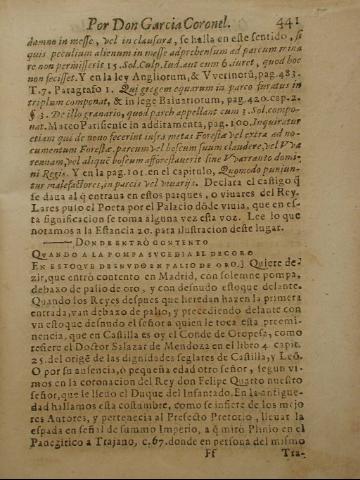 Por Don Garcia Coronel. 441
damno in messe, vel in clausura, se halla en este sentido, si
quis peculium alienum in messe adprehensum ad parcum mina
re non permisserit 15. Sol. Culp. Iud. aut cum 6. iuret, quod hoc
non fecisset. Y en la ley Angliorum, & Vverinorū, pag. 483.
T. 7. Paragrafo 1. Qui gregem equarum in parco furatus in
triplum componat, & in lege Baiuariorum, pag. 420. cap. 2.
§ 3. De illo granario, quod parch appellant cum 3. Sol. compo-
nat. Mateo Parisiense in additamenta, pag. 100. Inquiratur
etiam qui de novo fecerint infra metas Forestæ vel extra ad no-
cumentum Forestæ, parcum vel boscum suum claudere, vel Vva
rennam, vel aliquē boscum afforestaverit sine Vvarranto domi-
ni Regis. Y en la pag. 101. en el capitulo, Quomodo puniun-
tur malefactores, in parcis vel vivarijs. Declara el castigo q̃
se dava al q̃ entrava en estos parques, o vivares del Rey.
Lares puso el Poeta por el Palacio dōde vivia, que en es-
ta significacion se toma alguna vez esta voz. Lee lo que
notamos a la Estancia 20. para ilustracion deste lugar.
—— DONDE ENTRÒ CONTENTO
QUANDO A LA POMPA SUCEDIA EL DECORO
EN ESTOQUE DESNUDO EN PALIO DE ORO.] Quiere de-
zir, que entrò contento en Madrid, con solemne pompa,
debazo de palio de oro, y con desnudo estoque delante.
Quando los Reyes despues que heredan hazen la primera
entrada, van debaxo de palio, y precediendo delante con
vn estoque desnudo el señor a quien le toca esta preemi-
nencia, que en Castilla es oy el Conde de Oropesa, como
refiere el Doctor Salazar de Mendoza en el libro 4. capit.
25. del origē de las dignidades seglares de Castilla, y Leō.
O por su ausencia, ò pequeña edad otro señor, segun vi-
mos en la coronacion del Rey don Felipe Quarto nuestro
señor, que le llevò el Duque del Infantado. En la antigue-
dad hallamos esta costumbre, como se infiere de los mejo
res Autores, y pertenecia al Prefecto Pretorio, llevar la
espada en señal de summo Imperio, a q̃ mirò Plinio en el
Panegirico a Trajano, c. 67. donde en persona del mismo
Ff Tra-